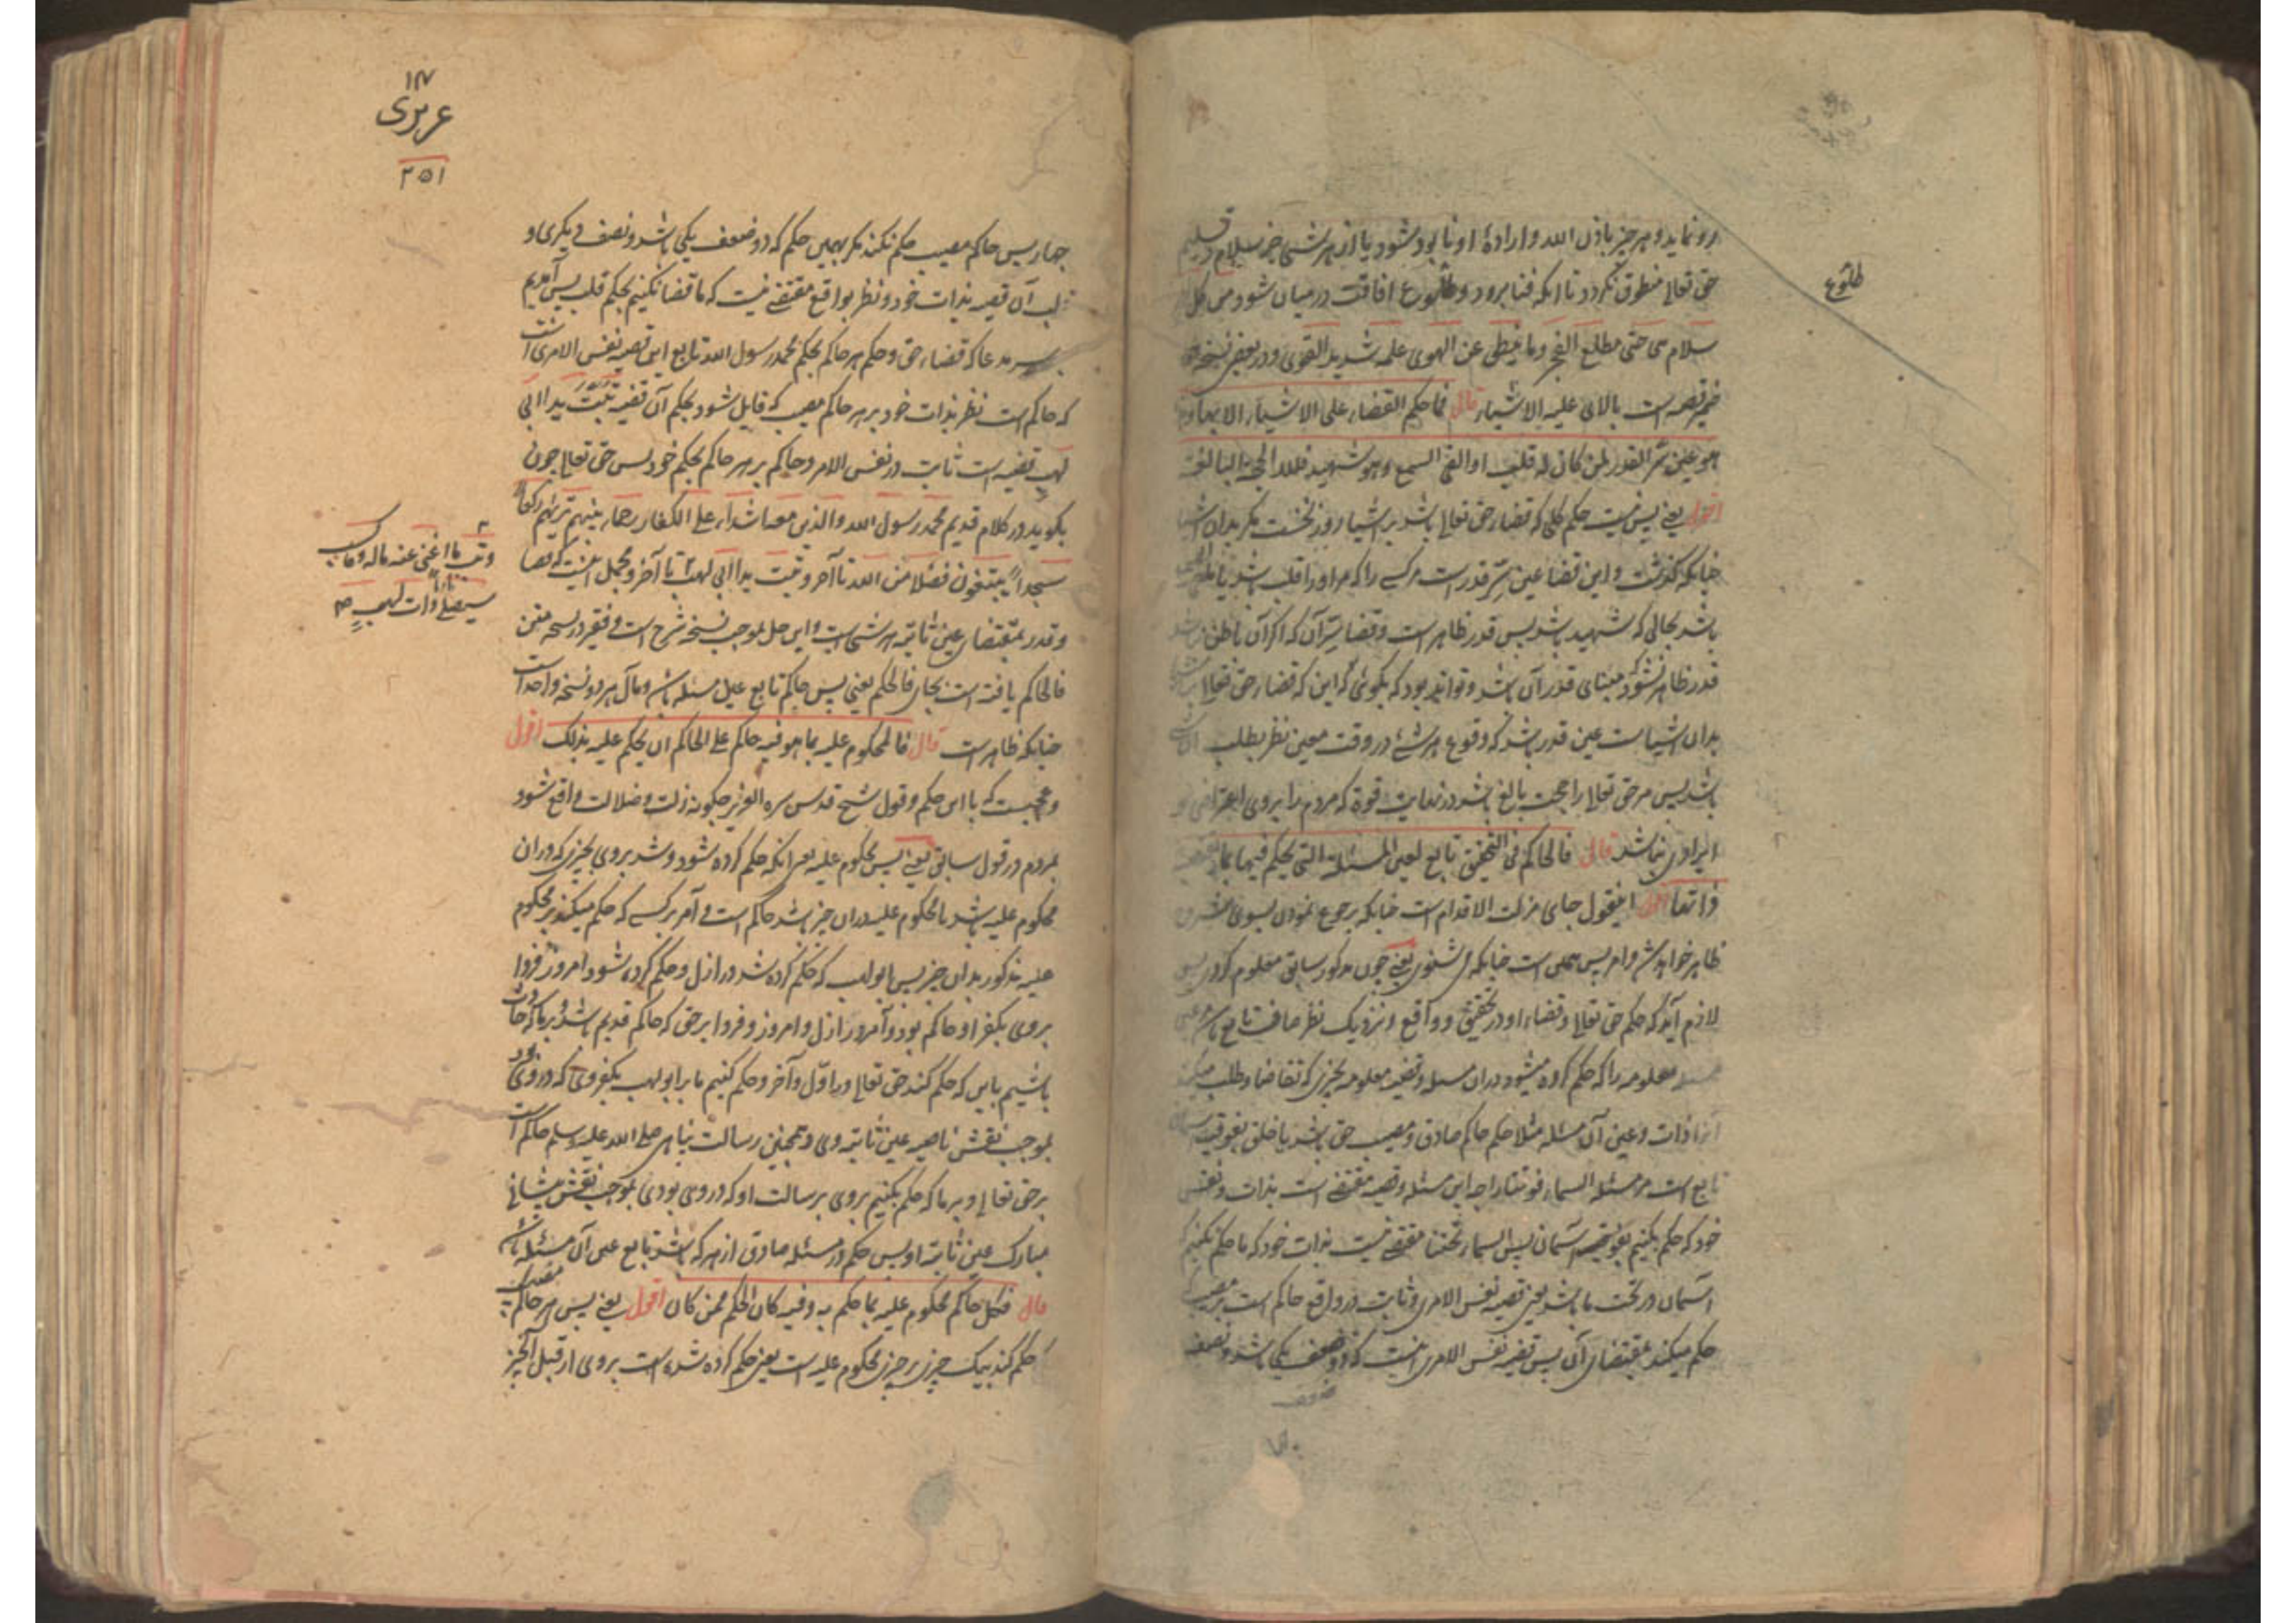 رو نماید و هر چیز باذن الله و ارادهٔ او نابود شود یا از هر شیٔ جز سلام
حق تعالی منطوق نگردد تا انکه فنا برود و طلوع افاقت در میان شود من کل
طلوع
سلام هی حتی مطلع الفجر وما ینطق عن الهوی علمه شدید القوی و در بعض نسخه
قال فما حکم القضاء علی الاشیاء الا بها وهذا
هو عین سر القدر لمن کان له قلب او القی السمع وهو شهید فلله الحجة البالغة
اقول یعنی پس نیست حکم کلی که قضاء حق تعالی باشد بر اشیا مگر بدان اشیا
چنانکه گذشت و این قضا عین سر قدر است مر کسی را که مر او را قلب باشد یا
باشد بحالی که شهید باشد پس قدر ظاهر است و قضا سر آن که اگر آن باطن
قدر ظاهر نشود مبنای قدر آن باشد و تواند بود که بگوئی که این که قضاء حق تعالی
بدان اشیاست عین قدر باشد که وقوع هر شئ در وقت معین نظر بطلب آن
باشد پس مر حق تعالی را حجت بالغ باشد در نهایت قوة که مردم را بروی اعتراض و
ایرادی نباشد قال فالحاکم فی التحقیق تابع لعین المسئلة التی یحکم فیها بما
ذاتها اقول اینقول جای مزلت الاقدام است چنانکه برجوع نمودن بسوی
ظاهر خواهد شد چنانکه می شنوی یعنی چون مذکور سابق معلوم کردی پس
لازم آید که حکم حق تعالی و قضاء او در تحقیق و واقع و نزدیک نظر صاف تابع باشد عین
مسئله معلومه را که حکم کرده میشود دران مسئله و قضیه معلومه بچیزی که تقاضا و طلب میکند
از ذات و عین آن مسئله مثلا حکم حاکم صادق و مصیب حق باشد یا خلق بفوقیت
تابع است مر مسئله السماء فوقنا را چه این مسئله و قضیه مقتضی است بذات و نفس
خود که حکم بکنیم بفوقیت آسمان پس السماء تحتنا مقتضی نیست بذات خود که ما حکم نکنیم که
آسمان در تحت ما باشد یعنی قضیه نفس الامری و ثابت در واقع حاکم است بر مصیب
حکم میکند بمقتضای آن پس قضیه نفس الامری اینست که دو ضعف یکی باشد و نصف
١٧
عزیزی
٢٥١
چهار پس حاکم مصیب حکم نکند مگر بهمین حکم که دو ضعف یکی باشد و نصف دیگری و
آن قضیه بذات خود و نظر بواقع مقتضی نیست که ما قضا نکنیم بحکم قلب پس آمدیم
بر سر مدعا که قضاء حق و حکم هر حاکم بحکم محمد رسول الله تابع این قضیه نفس الامری است
که حاکم است نظر بذات خود بر هر حاکم مصیب که قایل شود بحکم آن قضیه تبت یدا ابی
لهب قضیه است ثابت در نفس الامر و حاکم بر هر حاکم بحکم خود پس حق تعالی چون
بگوید در کلام قدیم محمد رسول الله والذین معه اشداء علی الکفار رحماء بینهم تریهم رکعا
سجدا یبتغون فضلا من الله تا آخر و تبت یدا ابی لهب تا آخر و محمل اینست که قضا
وتب ما اغنی عنه ماله وما کسب
سیصلی نارا ذات لهب
و قدر بمقتضای عین ثابته هر شی است و این حل بموجب نسخه شرح است و فقیر در نسخه متن
فالحاکم یافت است بجای فالحکم یعنی پس حاکم تابع عین مسئله باشد و مآل هر دو نسخه واحد است
چنانکه ظاهر است قال فالمحکوم علیه بما هو فیه حاکم علی الحاکم ان یحکم علیه بذلک اقول
و عجبست که با این حکم و قول شیخ قدس سره العزیز چگونه زلت و ضلالت واقع شود
بمردم در قول سابق یعنی پس محکوم علیه یعنی انکه حکم کرده شود و شد بروی بچیزی که دران
محکوم علیه باشد یا محکوم علیه دران چیز باشد حاکم است و آمر بر کسی که حکم میکند بر محکوم
علیه مذکور بدان چیز پس ابو لهب که حکم کرده شد در ازل و حکم کرده شود امروز و فردا
بروی بکفر او حاکم بود و آمر در ازل و امروز و فردا بر حق که حاکم قدیم باشد و بر ما که حادث
باشیم باین که حکم کند حق تعالی در اول و آخر و حکم کنیم ما بر ابو لهب بکفر وی که در وی بود
بموجب نقش ناصیه عین ثابته وی و همچنین رسالت پناهی صلی الله علیه وسلم حاکم است
بر حق تعالی و بر ما که حکم بکنیم بروی برسالت او که در وی بودی بموجب نقش پیشانی
مبارک عین ثابته او پس حکم در مسئله صادق از هر که باشد تابع عین آن مسئله باشد
قال فکل حاکم محکوم علیه بما حکم به وفیه کان الحاکم ممن کان اقول یعنی پس هر حاکم مصیب که
حکم کند بیک چیزی بر چیزی محکوم علیه است یعنی حکم کرده شده است بروی از قبل آن چیز